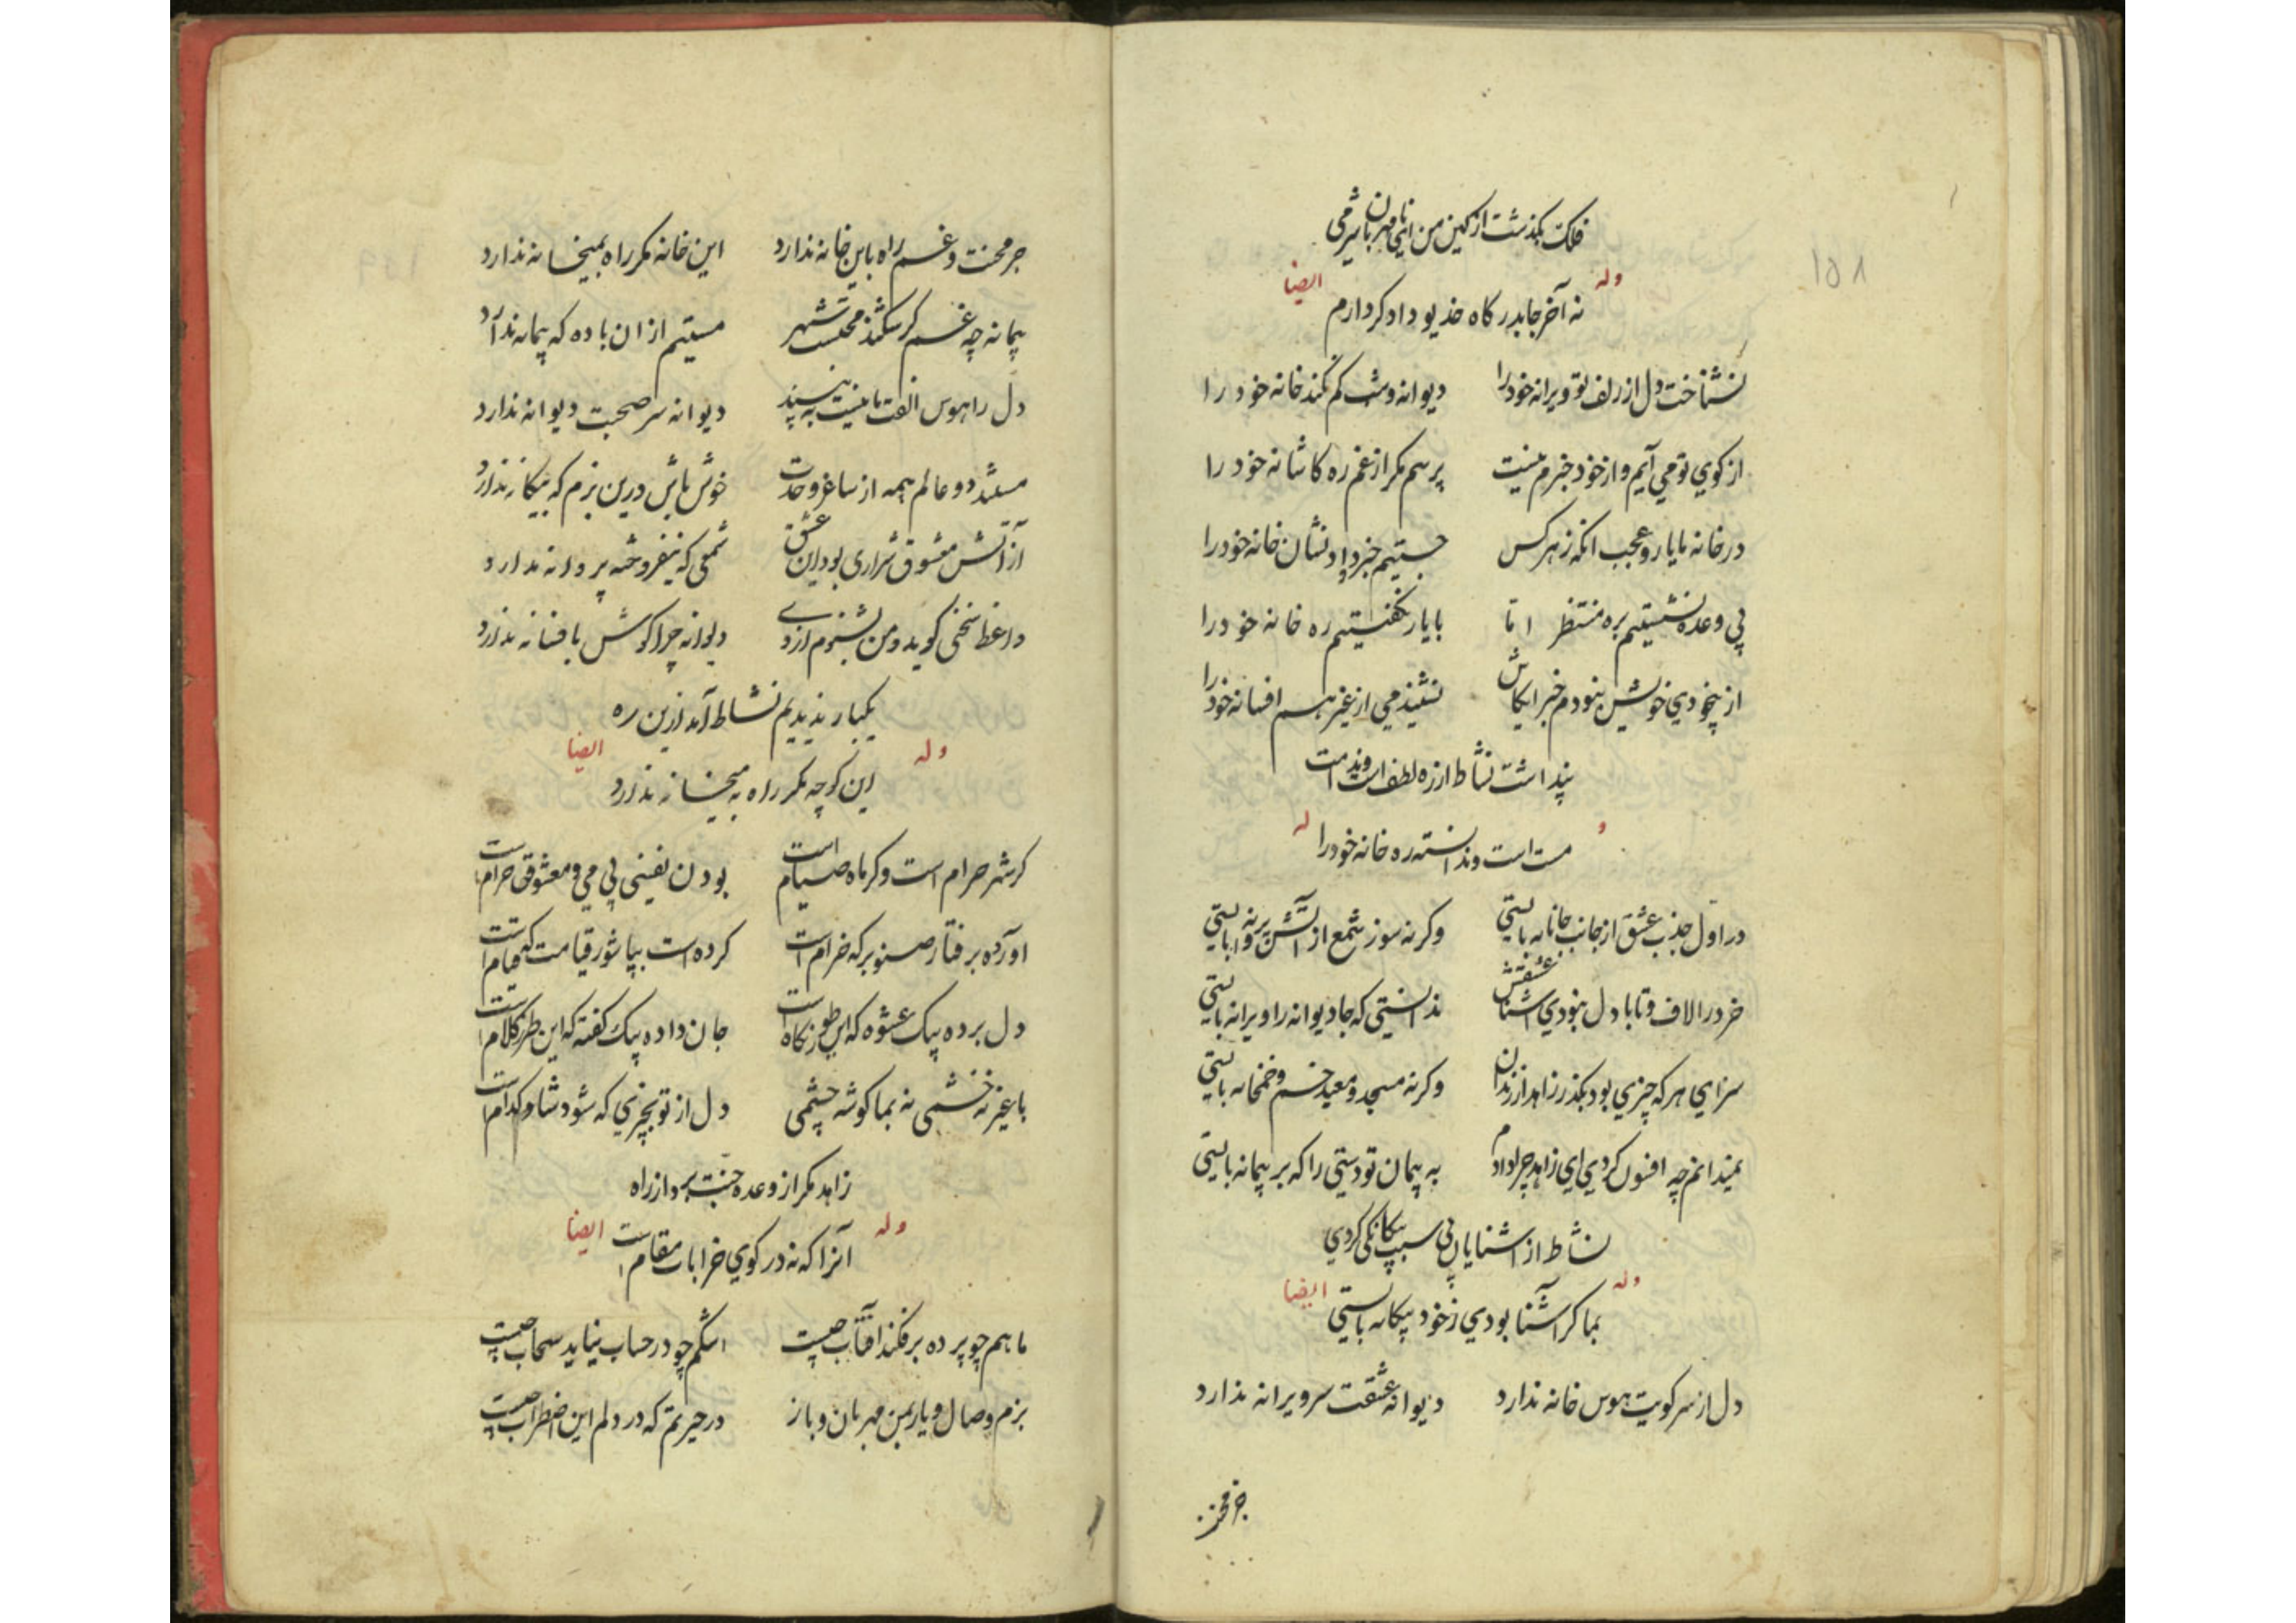 فلک بگذشت از کین من ای نامهربان شرمی
وله ایضا
نه آخر جا بدرکاه خدیو دادکر دارم
نشناخت دل از زلف تو ویرانه خود را دیوانه وش کم نکند خانه خود را
از کوی تو می آیم و از خود خبرم نیست پرسم مکر از غم ره کاشانه خود را
در خانه ما یار و عجب انکه ز هر کس جستیم خبر داد نشان خانه خود را
پی وعده نشستیم بره منتظر اما با یار نکفتیم ره خانه خود را
از بیخودی خویش نبودم خبر ایکاش نشنیدمی از غیر هم افسانه خود را
پنداشت نشاط از ره لطف است
و له
مست است و ندانسته ره خانه خود را
در اول جذب عشق از جانب جانانه بایستی وکرنه سوز شمع از آتش پروانه بایستی
خرد را لاف و تا با دل نبودی آشنا عشقش ندانستی که جا دیوانه را ویرانه بایستی
سزای هر که چیزی بود بکذر زاهد از رندان وکرنه مسجد و معبد خم و خمخانه بایستی
نمیدانم چه افسون کردی ای زاهد چرا دادم به پیمان تو دستی را که بر پیمانه بایستی
نشاط از آشنایان بی سبب بیکانکی کردی
وله ایضا
بما کر آشنا بودی ز خود بیکانه بایستی
دل از سر کویت هوس خانه ندارد دیوانه عشقت سر ویرانه ندارد
جز محنت
جز محنت و غم راه باین خانه ندارد این خانه مکر راه بمیخانه ندارد
پیمانه چه غم کر شکند محتسب شهر مستیم از ان باده که پیمانه ندارد
دل را هوس الفت ما نیست به بینید دیوانه سر صحبت دیوانه ندارد
مستند دو عالم همه از ساغر وحدت خوش باش درین بزم که بیکانه ندارد
از آتش معشوق شراری بود این عشق شمعی که نیفروخته پروانه ندارد
واعظ سخنی کوید و من نشنوم از وی دیوانه چرا کوش بافسانه ندارد
یکبار ندیدیم نشاط آمد ازین ره
وله ایضا
این کوچه مکر راه به میخانه ندارد
کر شهر حرام است و کر ماه صیام است بودن نفسی بی می و معشوق حرام است
اورده برفتار صنوبر که خرام است کرده است بپا شور قیامت که قیام است
دل برده بیک عشوه که این طرز نکاه است جان داده بیک کفته که این طرز کلام است
با غیر نه خشمی نه بما کوشه چشمی دل از تو بچیزی که شود شاد کدام است
زاهد مکر از وعده جنت بردش از راه
وله ایضا
آنرا که نه در کوی خرابات مقام است
ماهم چو پرده بر فکند افتاب چیست اشکم چو در حساب نیاید سحاب چیست
بزم وصال و یار بمن مهربان و باز در حیرتم که در دلم این اضطراب چیست